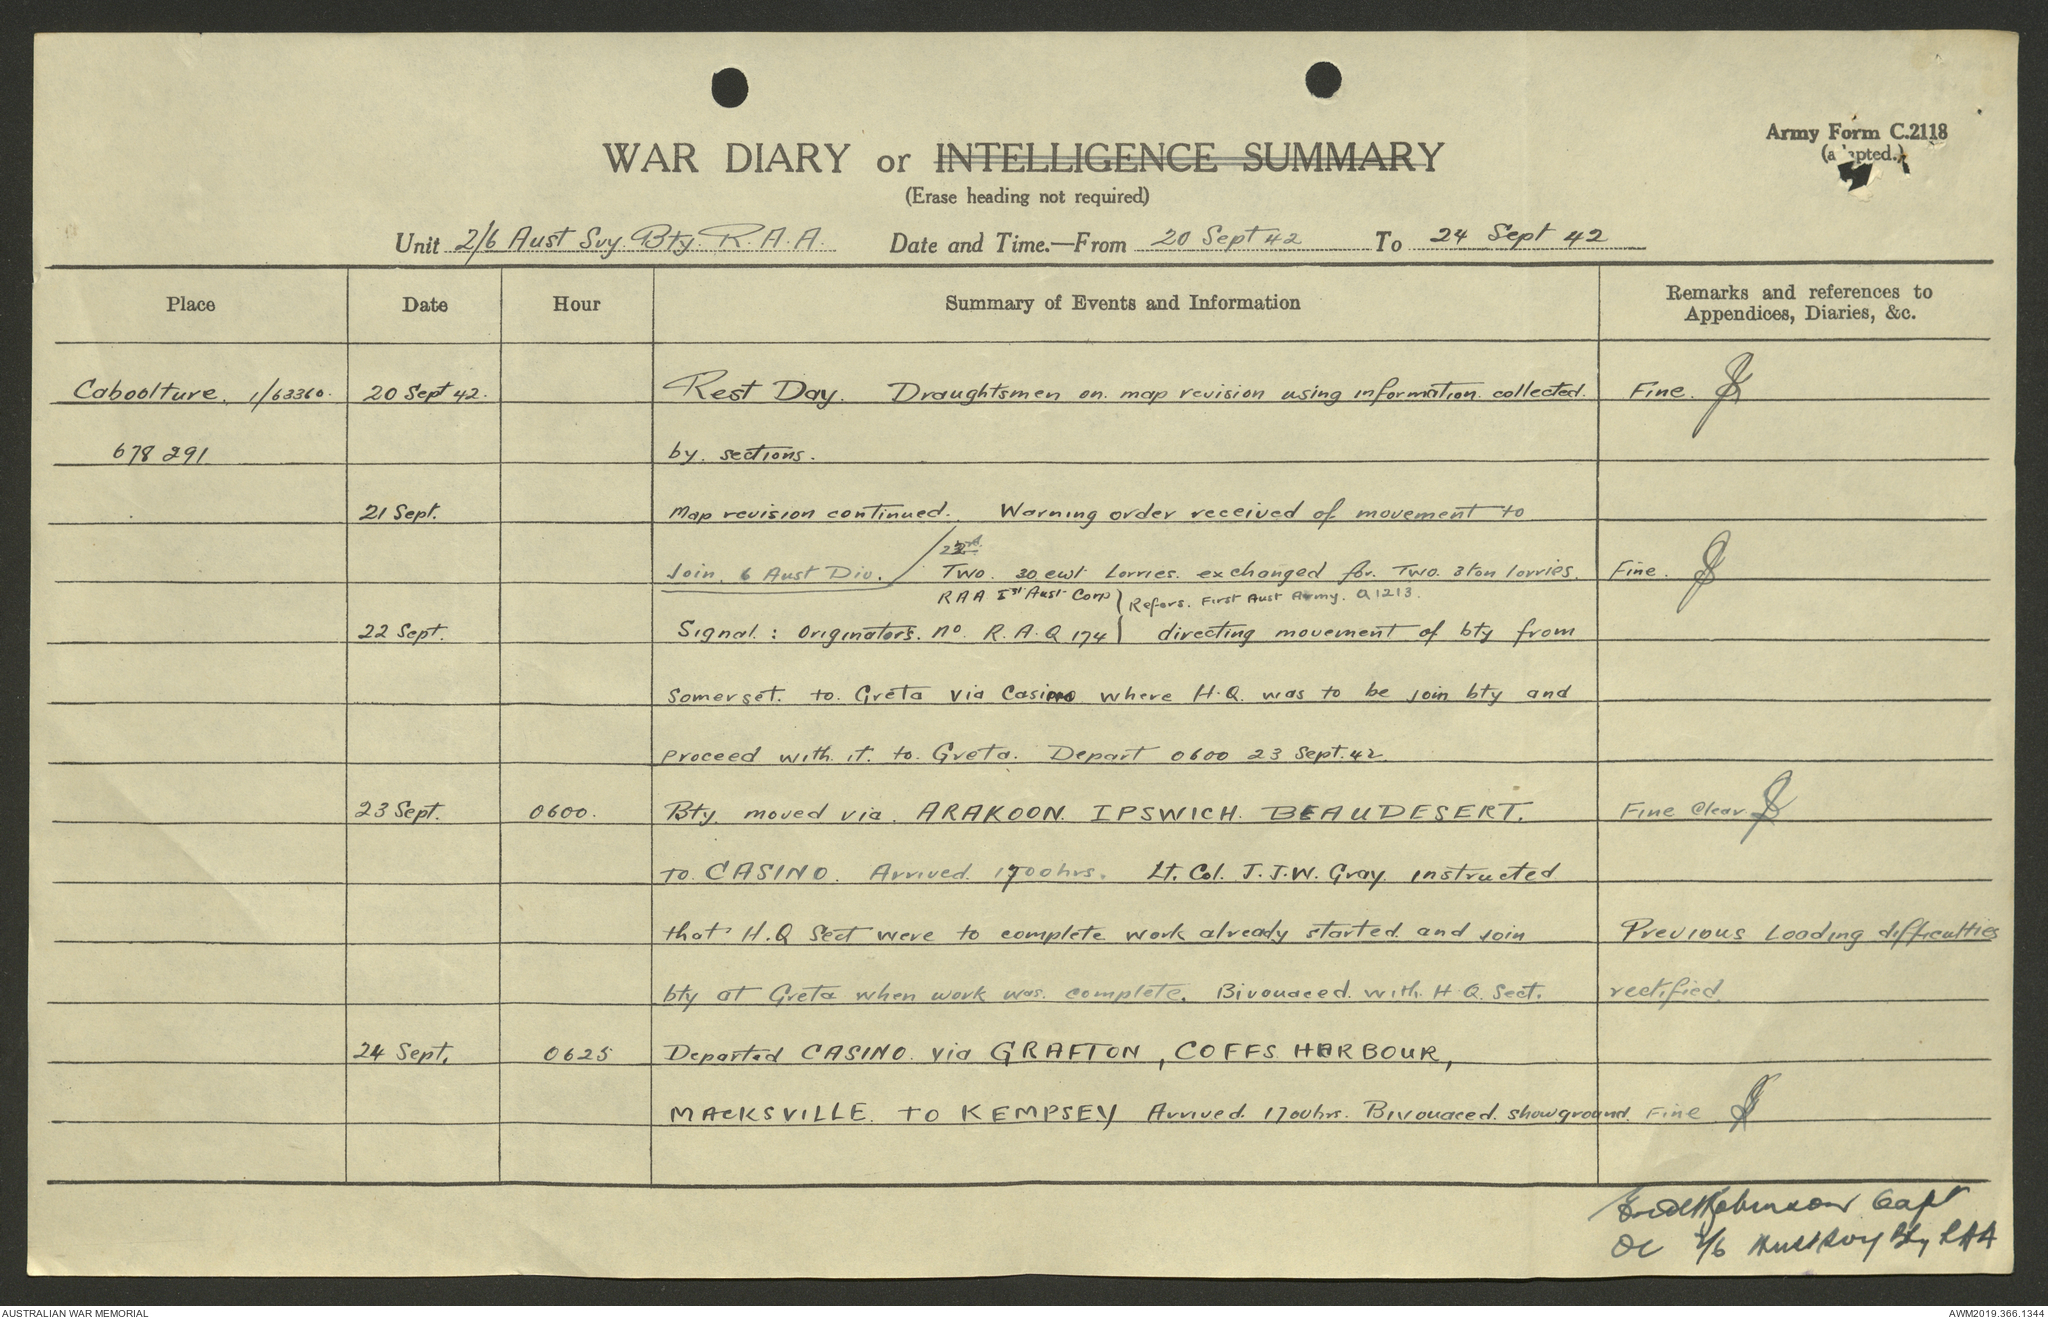 Army Form C.2118
(adapted.)
WAR DIARY or INTELLIGENCE SUMMARY
(Erase heading not required)
Unit 2/6 Aust Svy. Bty. R.A.A. Date and Time.—From 20 Sept 42 To 24 Sept 42
Place Date Hour Summary of Events and Information Remarks and references to
Appendices, Diaries, &c.
Caboolture. 1/63360. 20 Sept 42. Rest Day. Draughtsmen on map revision using information collected. Fine.
678 291 by sections.
21 Sept. Map revision continued. Warning order received of movement to
22nd
Join 6 Aust Div. Two 30 cwt Lorries exchanged for Two 3 ton lorries. Fine.
RAA 1st Aust Corp } Refers. First Aust Army. Q1213.
22 Sept. Signal: Originators no. R.A.Q 174 } directing movement of bty from
Somerset to Greta via Casino where H.Q. was to be join bty and
proceed with it to Greta. Depart 0600 23 Sept. 42.
23 Sept. 0600. Bty moved via ARAKOON. IPSWICH. BEAUDESERT. Fine Clear.
to CASINO. Arrived 1700hrs. Lt. Col. J.J.W. Gray. instructed
that H.Q Sect were to complete work already started and join Previous Loading difficulties
bty at Greta when work was complete. Bivouaced with H.Q. Sect. rectified.
24 Sept. 0625 Departed CASINO via GRAFTON, COFFS HARBOUR,
MACKSVILLE TO KEMPSEY Arrived 1700hrs. Bivouaced showground. Fine
Robinson Capt
OC 2/6 Aust Svy Bty RAA
AUSTRALIAN WAR MEMORIAL AWM2019.366.1344